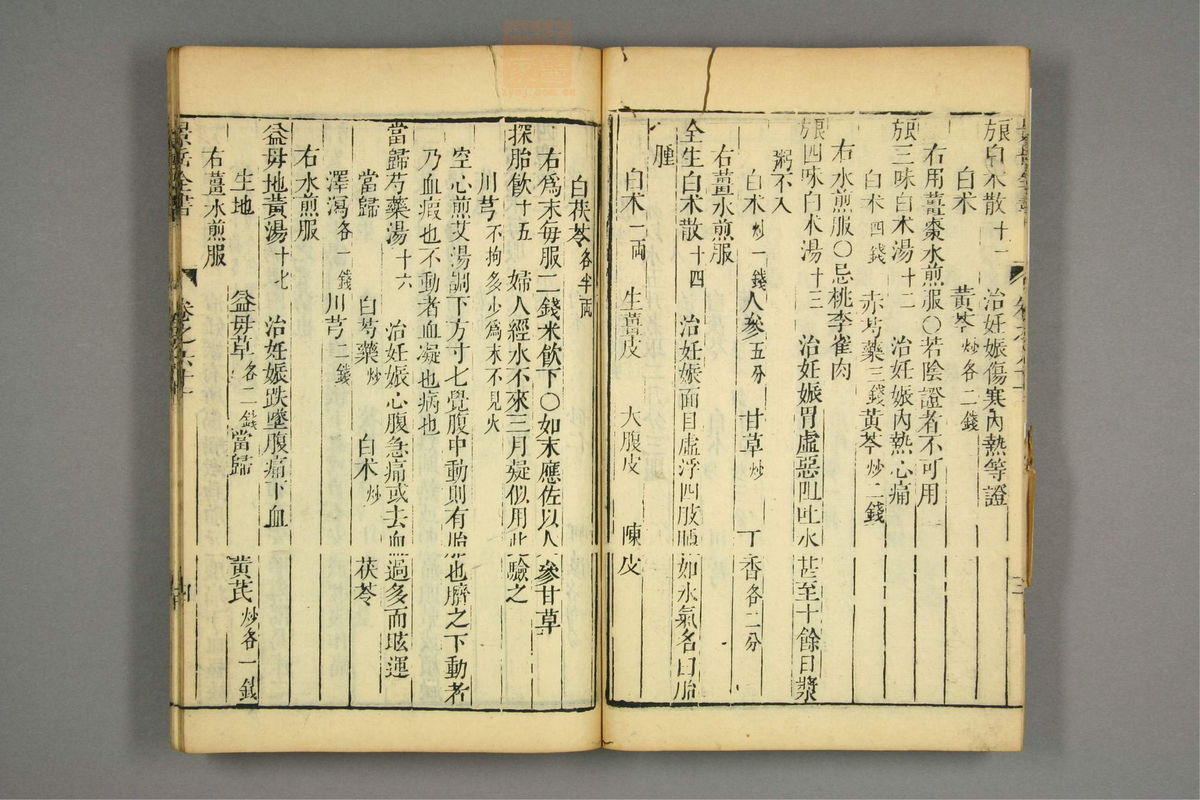 良白朮散十一 治妊娠傷寒內熱等證
白朮 黃芩炒各二錢
右用薑棗水煎服〇若陰證者不可用
良三味白朮湯十二 治妊娠內熱心痛
白朮四錢 赤芍藥三錢 黃芩炒二錢
右水煎服〇忌桃李雀肉
良四味白朮湯十三 治妊娠胃虛惡阻吐水甚至十餘日漿
粥不入
白朮炒一錢 人參五分 甘草炒 丁香各二分
右薑水煎服
全生白朮散十四 治妊娠面目虛浮四肢腫如水氣名曰胎
腫
白朮一兩 生薑皮 大腹皮 陳皮
白茯苓各半兩
右爲末每服二錢米飲下〇如未應佐以人參甘草
探胎飲十五 婦人經水不來三月疑似用此驗之
川芎不拘多少爲末不見火
空心煎艾湯調下方寸七覺腹中動則有胎也臍之下動者
乃血瘕也不動者血凝也病也
當歸芍藥湯十六 治妊娠心腹急痛或去血過多而眩運
當歸 白芍藥炒 白朮炒 茯苓
澤瀉各一錢 川芎二錢
右水煎服
益母地黃湯十七 治妊娠跌墜腹痛下血
生地 益母草各二錢 當歸 黃芪炒各一錢
右薑水煎服
景岳全書 卷之六十一